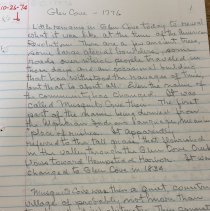 10-26-74
Glen Cove - 1776
Little remains in Glen Cove today to reveal
what it was like at the time of the American
Revolution. There are a few ancient trees
some large glacial boulders, some
roads over which people traveled in
those days and an occasional building
that has withstood the ravages of time,
but that is about all. Even the name of
the community has changed. It was
called Mosquito Cove then. The first
part of the name being derived from
the Algonkian Indians
place of rushes. It apparently
referred to the tall grass that flourished
in the valley through which Glen Cove Creek
flows toward Hempstead Harbor. It was
changed to Glen in 1834.
Mosquito Cove was then a quiet country
village of probably not more than